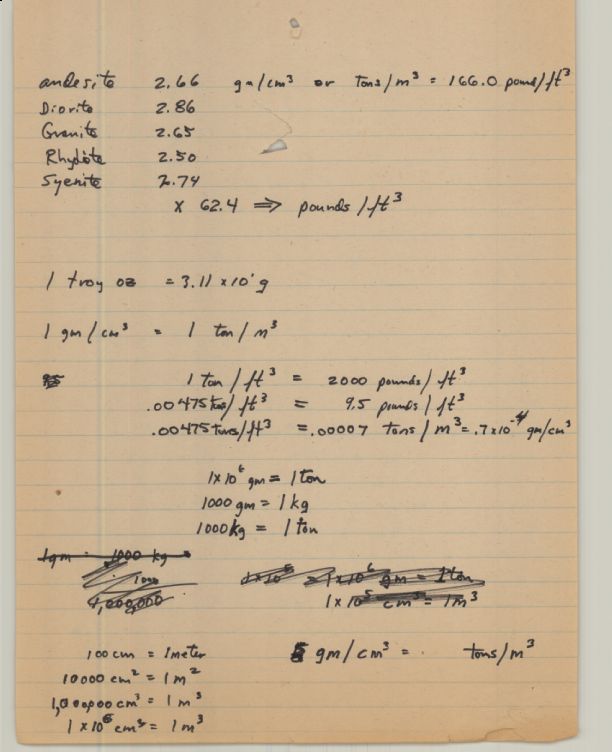 andesite 2.66 gm/cm³ or Tons/m³ = 166.0 pound/ft³
Diorite 2.86
Granite 2.65
Rhyolite 2.50
Syenite 2.74
x 62.4 ⇒ pounds/ft³
1 troy oz = 3.11 x 10¹ g
1 gm/cm³ = 1 ton/m³
1 ton/ft³ = 2000 pounds/ft³
.00475 ton/ft³ = 9.5 pounds/ft³
.00475 tons/ft³ = .00007 tons/m³ = .7x10⁻⁴ gm/cm³
1x10⁶ gm = 1 ton
1000 gm = 1 kg
1000 kg = 1 ton
1gm · 1000 kg =
1000
1,000,000
1x10⁶ = 1x10⁶ gm = 1 ton
1x10⁵ cm³ = 1m³
100 cm = 1 meter
gm/cm³ = . tons/m³
10000 cm² = 1 m²
1,000,000 cm³ = 1 m³
1 x 10⁶ cm³ = 1 m³